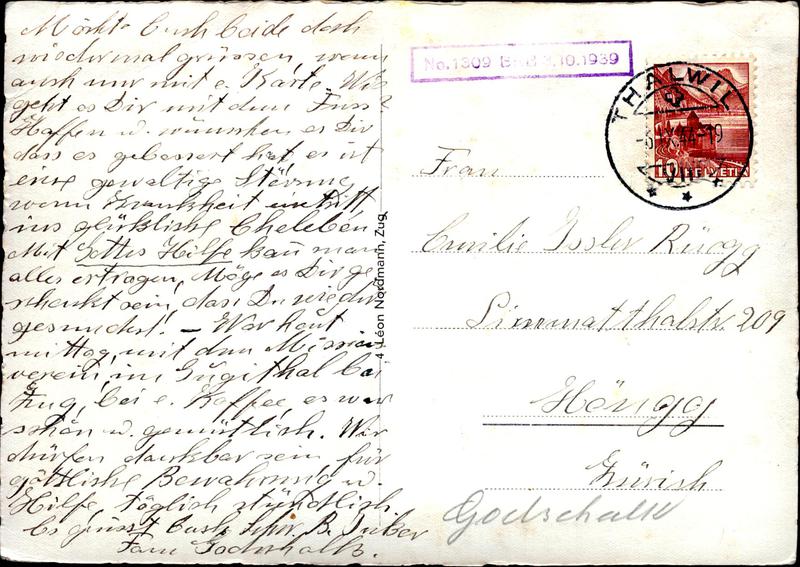 Möchte Euch beide doch
wiedermal grüssen, wenn
auch nur mit e. Karte. Wie
geht es Dir mit dem Fuss?
Hoffen u. wünschen es Dir
dass es gebessert hat, es ist
eine gewaltige Störung
wenn Krankheit eintritt
ins glükliche Eheleben
Mit Gottes Hilfe kan man
alles ertragen, Möge es Dir ge
schenkt sein, dass Du wieder
gesundest! – War heut
mittag mit dem Mission
verein im Gugithal bei
Zug, bei e. Kaffee, es war
schön u. gemütlich. Wir
dürfen dankbar sein für
göttliche Bewahrung u.
Hilfe, täglich stündlich.
Es grüsst Euch B.
Fam Godschalk.
4 Léon Nordmann, Zug
No. 1309 BRB 3.10.1939
THALWIL
HELVETIA
Frau
Emilie Issler Rüegg
Limmatthalstr. 209
Höngg
Zürich
Godschalk